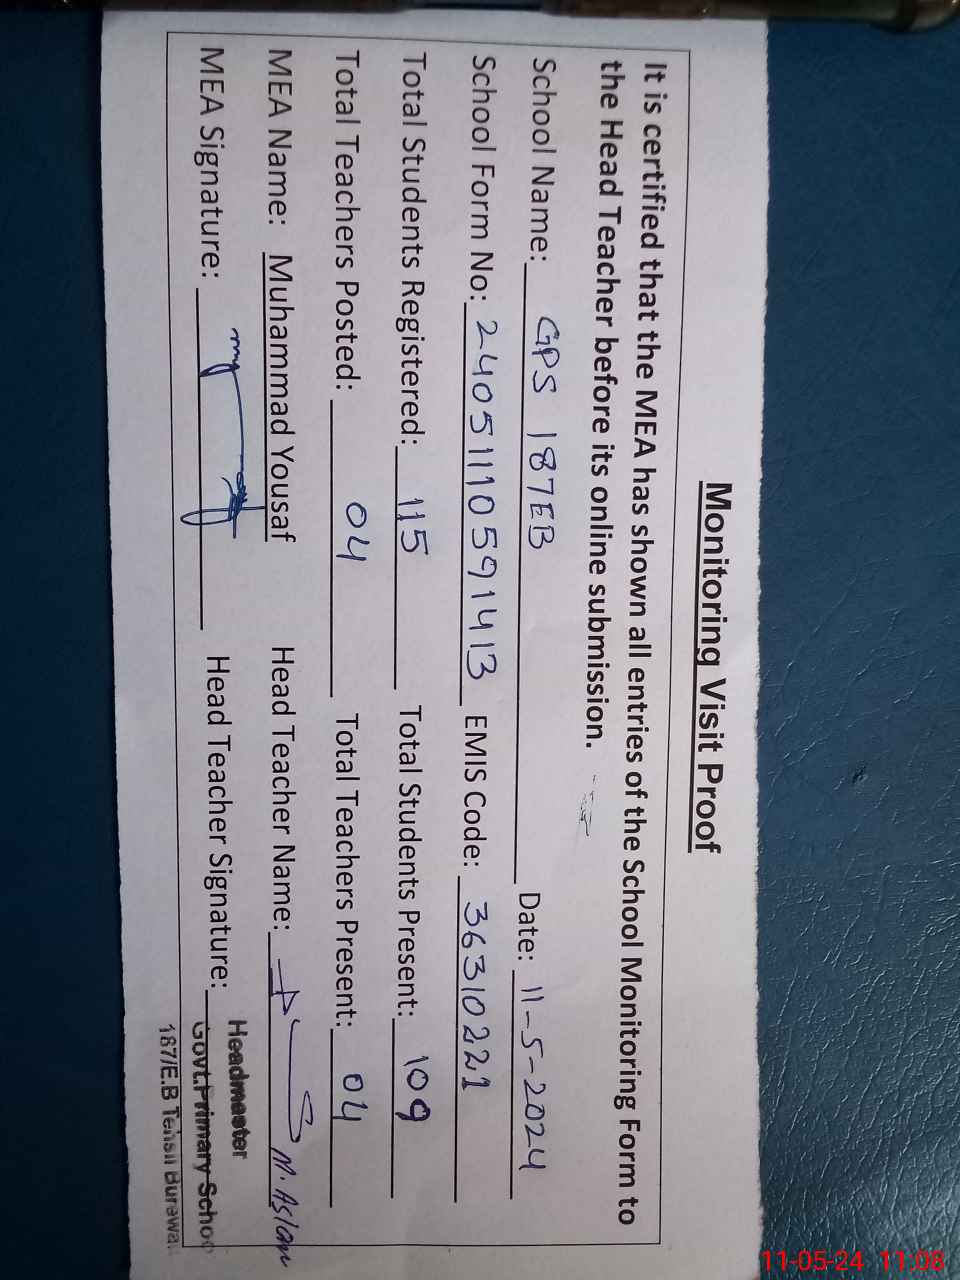 Monitoring Visit Proof
It is certified that the MEA has shown all entries of the School Monitoring Form to
the Head Teacher before its online submission.
School Name: GPS 187EB Date: 11-5-2024
School Form No: 24051110591413 EMIS Code: 36310221
Total Students Registered: 115 Total Students Present: 109
Total Teachers Posted: 04 Total Teachers Present: 04
MEA Name: Muhammad Yousaf Head Teacher Name: M. Aslam
MEA Signature: Head Teacher Signature:
Headmaster
Govt.Primary Schoo
187/E.B Tehsil Burewa
11-05-24 11:08